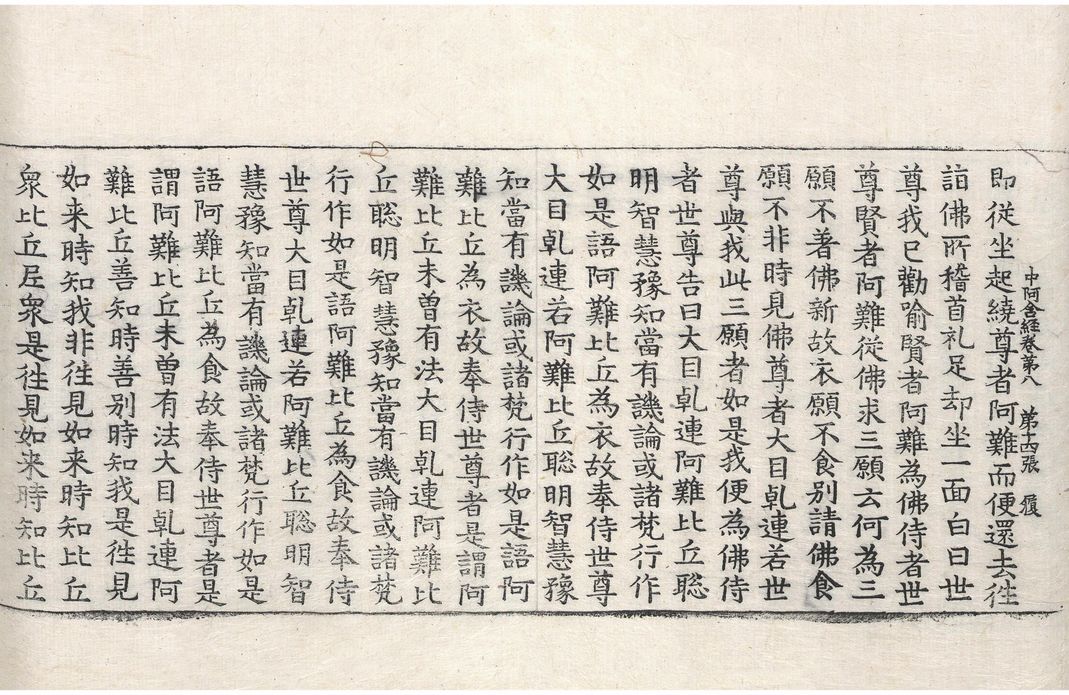 中阿含經卷第八 第十四張 履
即從坐起繞尊者阿難而便還去徃
詣佛所稽首礼足却坐一面白曰世
尊我已勸喻賢者阿難為佛侍者世
尊賢者阿難從佛求三願云何為三
願不著佛新故衣願不食別請佛食
願不非時見佛尊者大目乹連若世
尊與我此三願者如是我便為佛侍
者世尊告曰大目乹連阿難比丘聡
明智慧豫知當有譏論或諸梵行作
如是語阿難比丘為衣故奉侍世尊
大目乹連若阿難比丘聡明智慧豫
知當有譏論或諸梵行作如是語阿
難比丘為衣故奉侍世尊者是謂阿
難比丘未曾有法大目乹連阿難比
丘聡明智慧豫知當有譏論或諸梵
行作如是語阿難比丘為食故奉侍
世尊大目乹連若阿難比丘聡明智
慧豫知當有譏論或諸梵行作如是
語阿難比丘為食故奉侍世尊者是
謂阿難比丘未曾有法大目乹連阿
難比丘善知時善別時知我是徃見
如来時知我非徃見如来時知比丘
衆比丘尼衆是徃見如来時知比丘